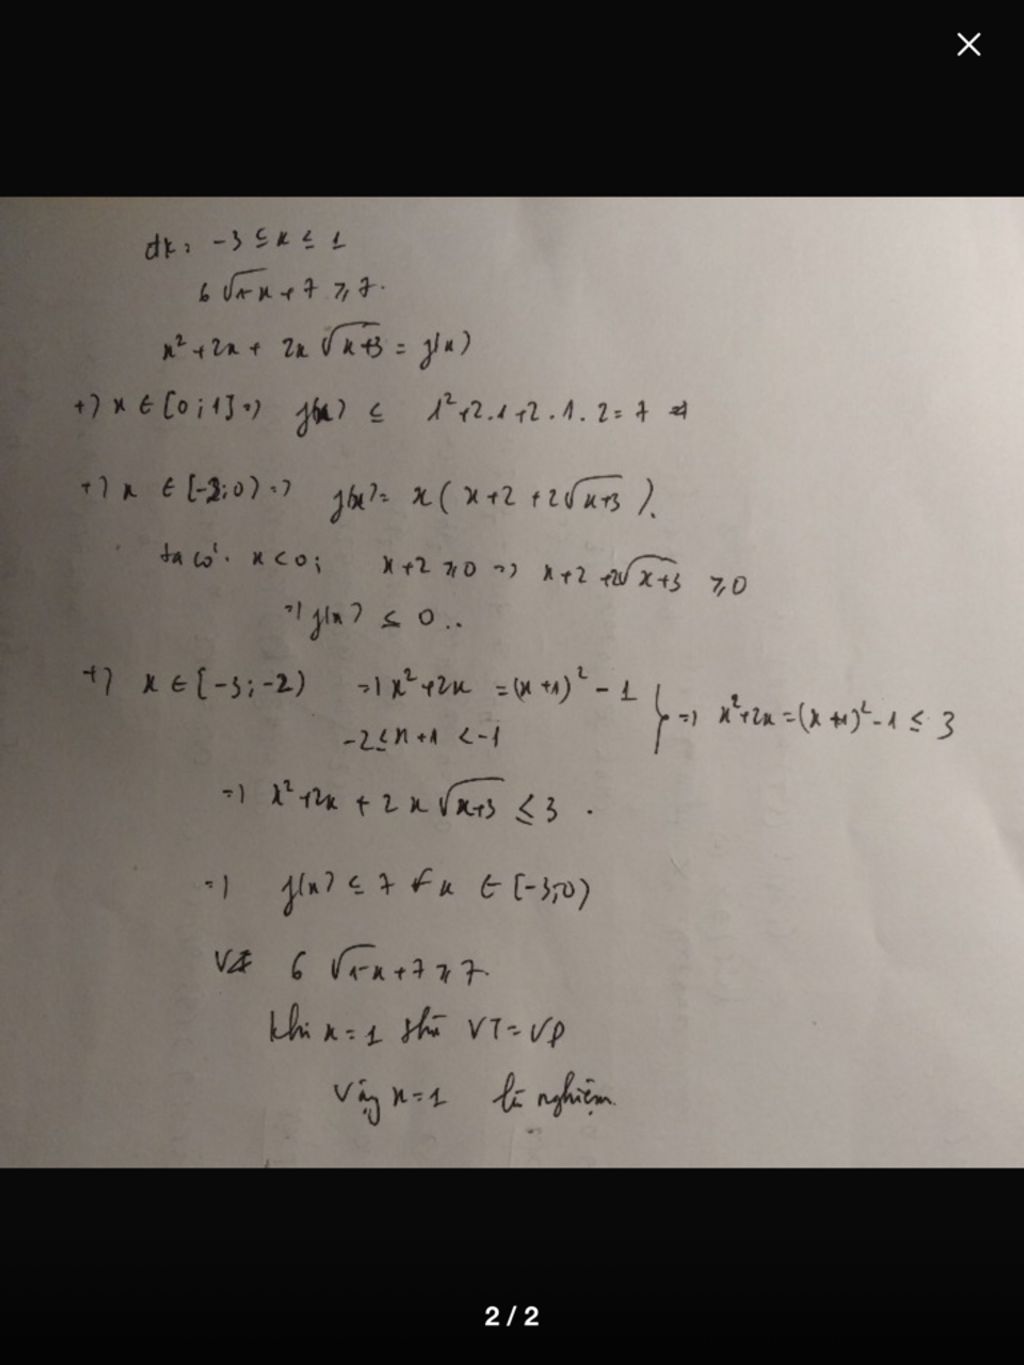 đk: -3 ≤ x ≤ 1
6 √1-x + 7 ≥ 7.
x² + 2x + 2x √x+3 = f(x)
+) x ∈ [0; 1] => f(x) ≤ 1² + 2.1 + 2.1.2 = 7
+) x ∈ [-2; 0) => f(x) = x ( x + 2 + 2√x+3 ).
ta có. x < 0; x + 2 ≥ 0 => x + 2 + 2√x+3 ≥ 0
=> f(x) ≤ 0..
+) x ∈ [-3; -2) => x² + 2x = (x+1)² - 1
-2 ≤ x + 1 < -1
} => x² + 2x = (x+1)² - 1 ≤ 3
=> x² + 2x + 2x √x+3 ≤ 3.
=> f(x) ≤ 7 ∀ x ∈ [-3; 0)
6 √1-x + 7 ≥ 7.
khi x = 1 thì VT = VP
Vậy x = 1 là nghiệm.
2 / 2